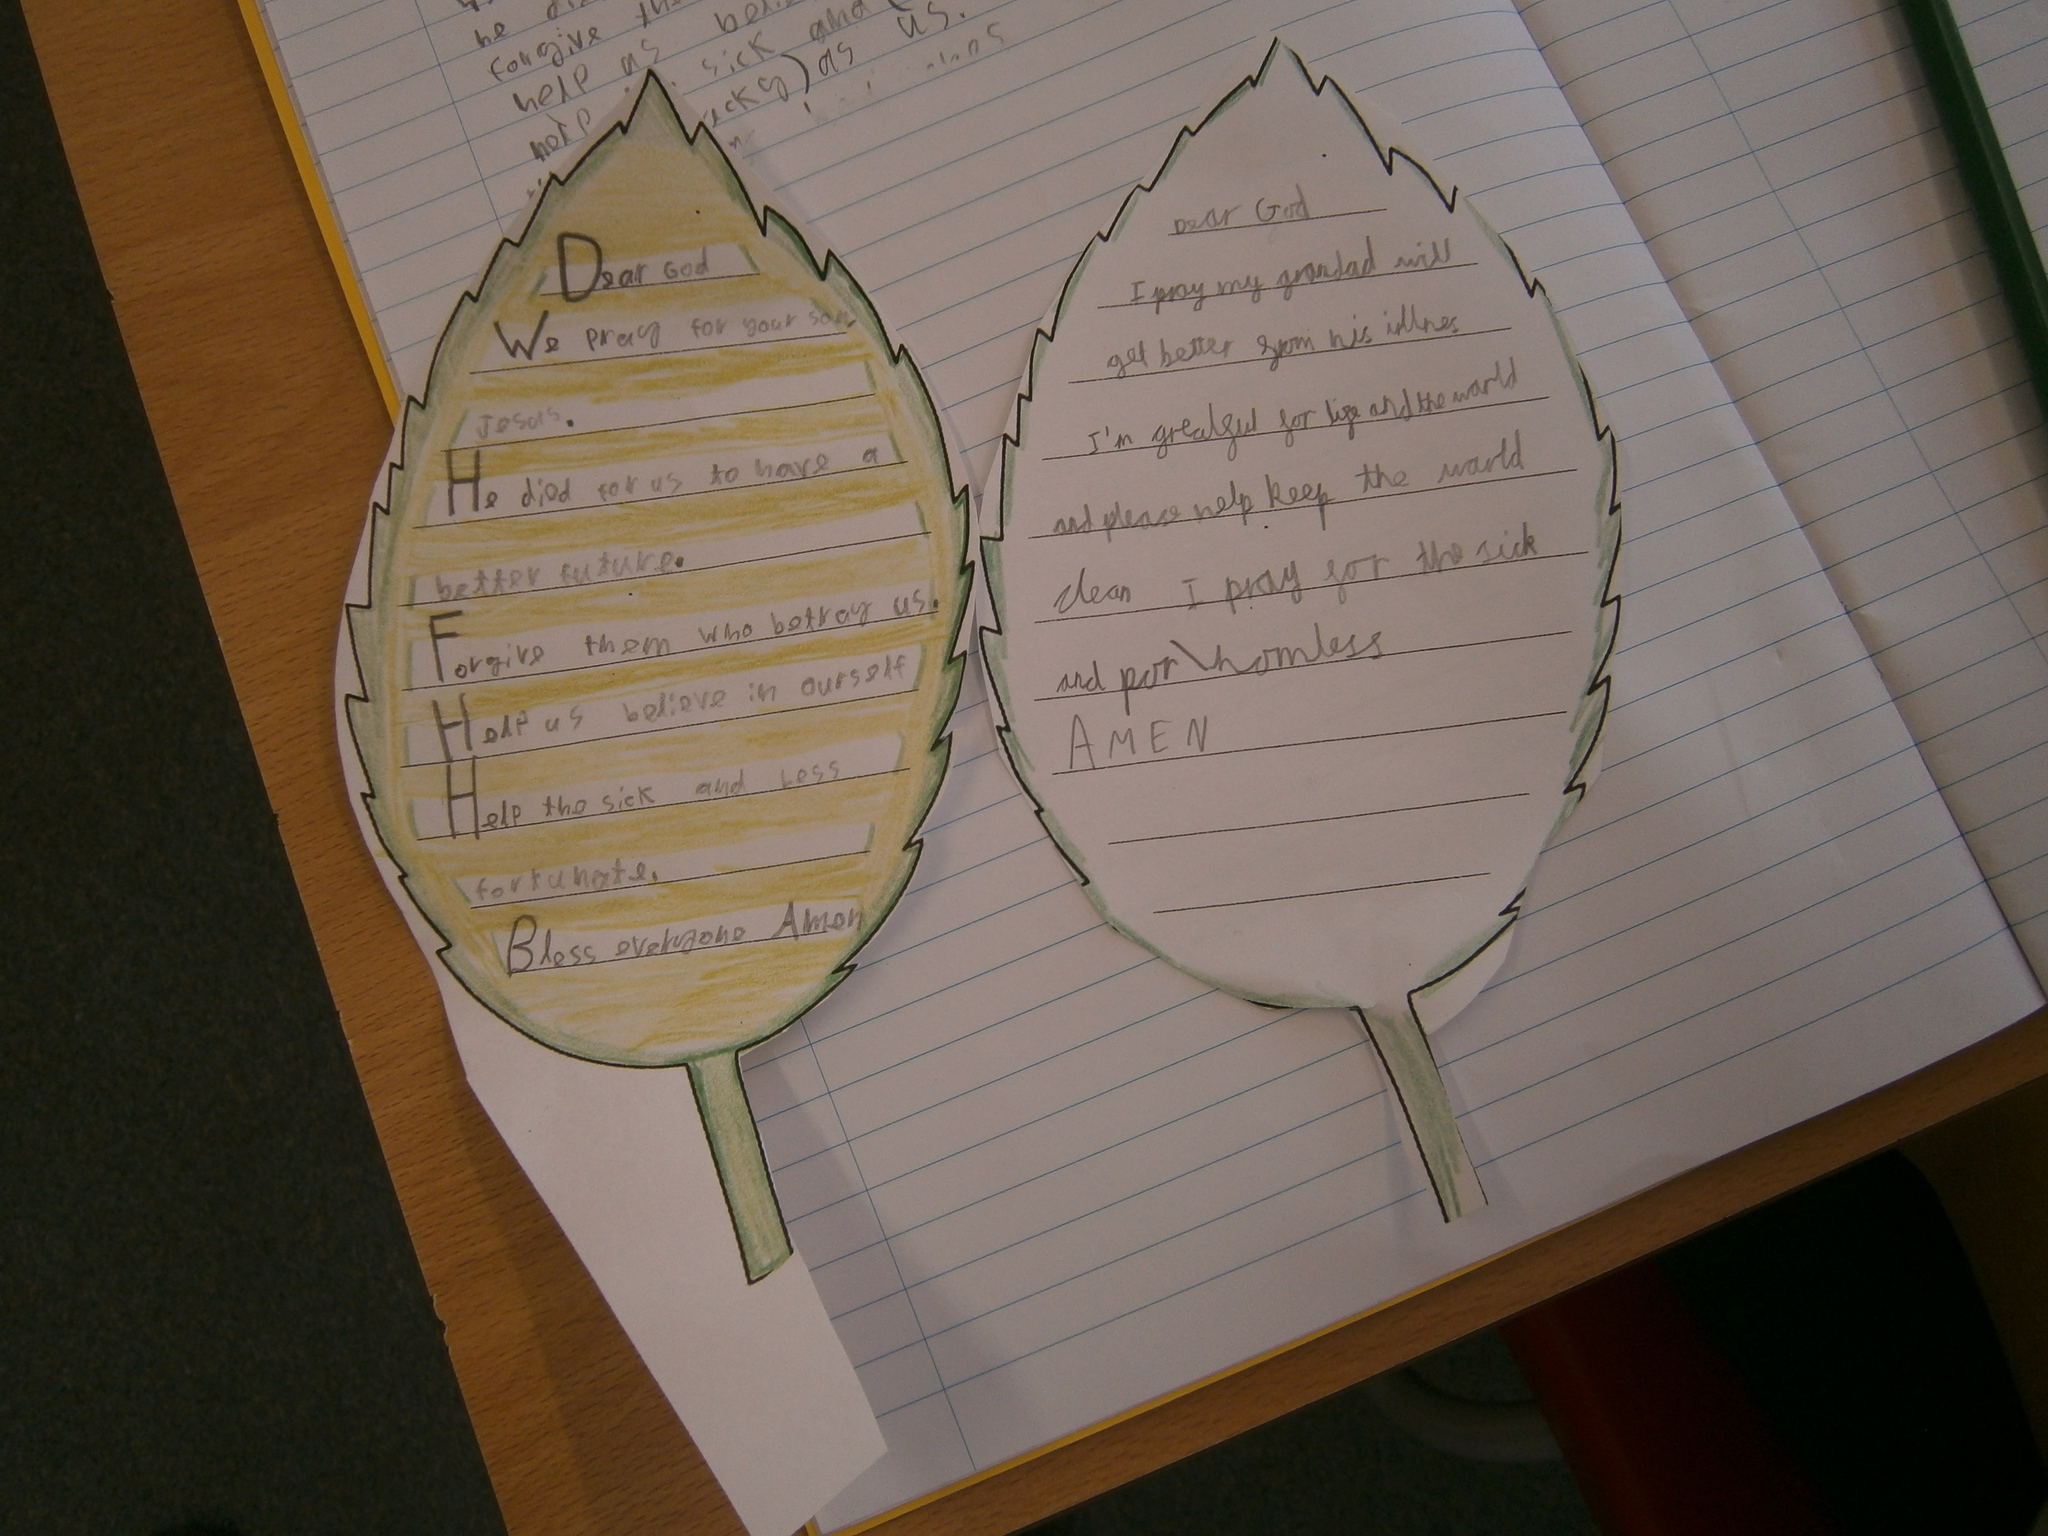 he
forgive the
help us
sick and
as us.
Dear God
We pray for your son
Jesas.
He died for us to have a
better future.
Forgive them who betray us.
Help us believe in ourself
Help the sick and less
fortunate.
Bless everyone Amen
Dear God
I pray my grandad will
get better from his illnes
I'm greatful for life and the world
and please help keep the world
clean I pray for the sick
and por\homless
AMEN